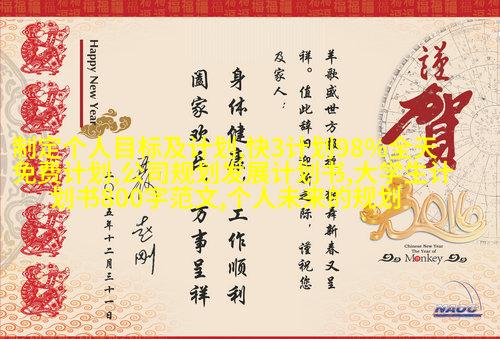 制定个人目标及计划,快3计划98%全天
免费计划,公司规划发展计划书,大学生计
划书800字范文,个人未来的规划
謹賀
2016
Chinese New Year
The Year of
Monkey
NAOC
及家人：
羊歌盛世方报捷 舞新春又呈
祥。值此辞旧迎新之际，谨祝您
身体健康，工作顺利
阖家欢乐 万事呈祥
赵刚
五年十二月三十一日
Happy New Year